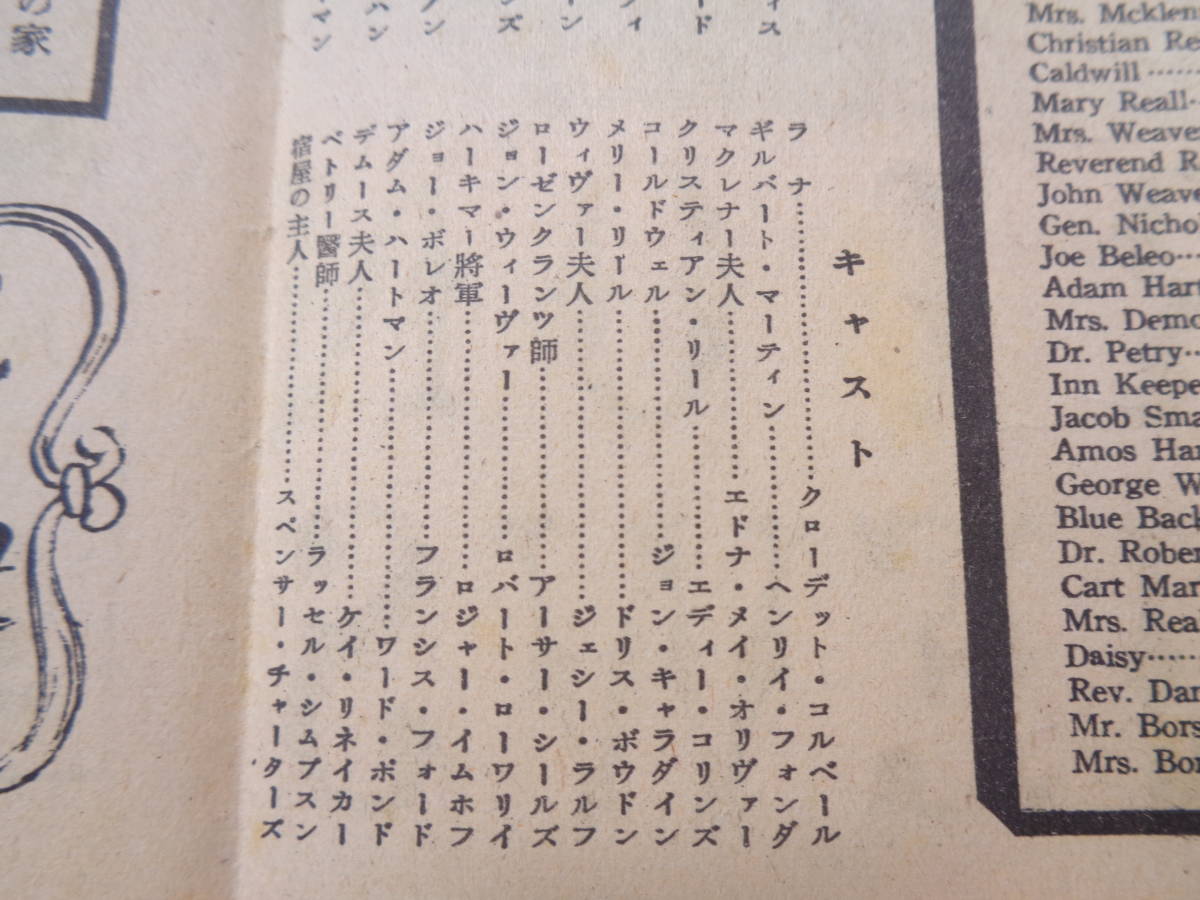 キャスト
ラナ……………クローデット・コルベール
ギルバート・マーティン……………ヘンリイ・フォンダ
マクレナー夫人……………エドナ・メイ・オリヴァー
クリスティアン・リール……………エディー・コリンズ
コールドウェル……………ジョン・キャラダイン
メリー・リール……………ドリス・ボウドン
ウィヴァー夫人……………ジェシー・ラルフ
ローゼンクランツ師……………アーサー・シールズ
ジョン・ウィーヴァー……………ロバート・ローワリイ
ハーキマー將軍……………ロジャー・イムホフ
ジョー・ボレオ……………フランシス・フォード
アダム・ハートマン……………ワード・ボンド
デムース夫人……………ケイ・リネイカー
ペトリー醫師……………ラッセル・シムプスン
宿屋の主人……………スペンサー・チャーターズ
Mrs. Mcklen
Christian Re
Caldwill……
Mary Reall
Mrs. Weave
Reverend R
John Weav
Gen. Nicho
Joe Beleo…
Adam Hart
Mrs. Demo
Dr. Petry…
Inn Keepe
Jacob Sma
Amos Har
George W
Blue Back
Dr. Rober
Cart Mar
Mrs. Rea
Daisy……
Rev. Dan
Mr. Bors
Mrs. Bor
の家
ィス
ード
ィ
ーン
ンズ
ン
ハン
マン